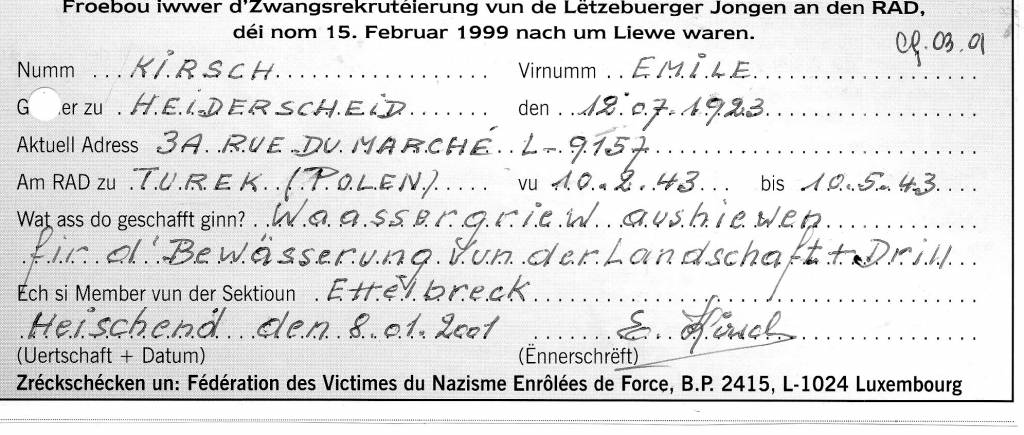 Froebou iwwer d'Zwangsrekrutéierung vun de Lëtzebuerger Jongen an den RAD,
déi nom 15. Februar 1999 nach um Liewe waren.
03.01
Numm KIRSCH Virnumm EMILE
zu HEIDERSCHEID den 12.07.1923
Aktuell Adress 3A RUE DU MARCHÉ L-9157
Am RAD zu TUREK (POLEN) vu 10.2.43 bis 10.5.43
Wat ass do geschafft ginn? Waassergriew aushiewen
fir d'Bewässerung vun der Landschaft + Drill
Ech si Member vun der Sektioun Ettelbreck
Heischend den 8.01.2001 E. Kirsch
(Uertschaft + Datum) (Ënnerschrëft)
Zréckschécken un: Fédération des Victimes du Nazisme Enrôlées de Force, B.P. 2415, L-1024 Luxembourg